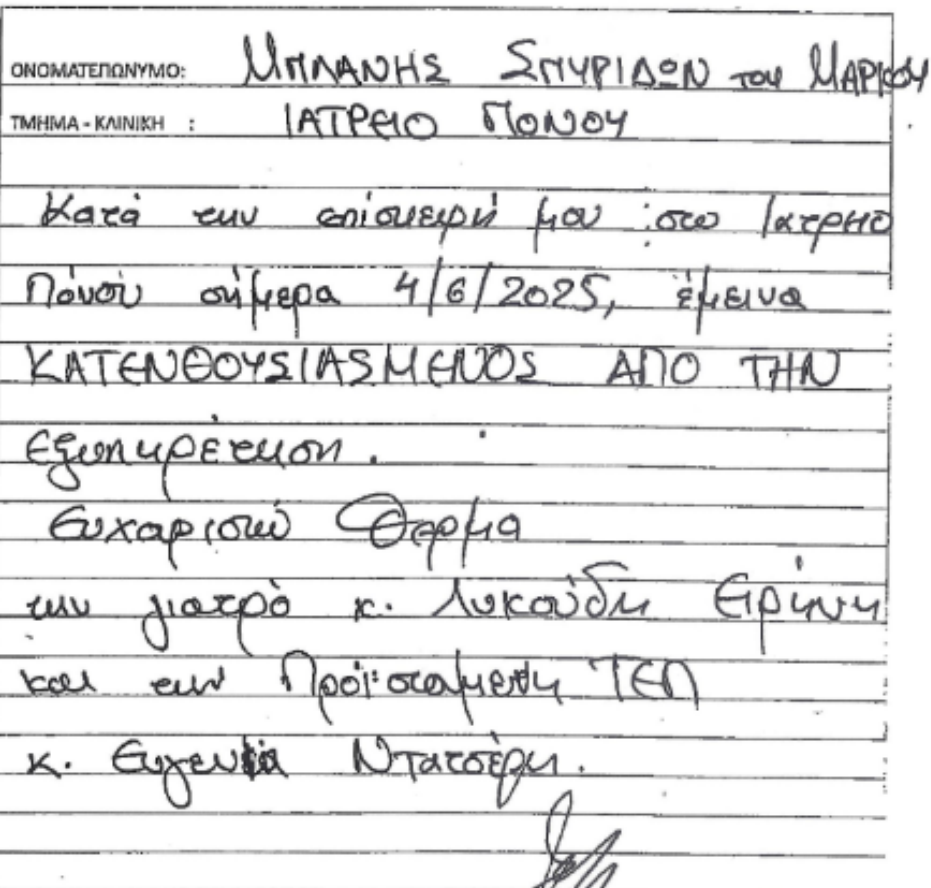 ΟΝΟΜΑΤΕΠΩΝΥΜΟ: ΜΠΛΑΝΗΣ ΣΠΥΡΙΔΩΝ του ΜΑΡΚΟΥ
ΤΜΗΜΑ - ΚΛΙΝΙΚΗ : ΙΑΤΡΕΙΟ ΠΟΝΟΥ
Κατά την επίσκεψή μου στο Ιατρείο
Πόνου σήμερα 4/6/2025, έμεινα
ΚΑΤΕΝΘΟΥΣΙΑΣΜΕΝΟΣ ΑΠΟ ΤΗΝ
εξυπηρέτηση.
Ευχαριστώ Θερμά
την γιατρό κ. Λυκούδη Ειρήνη
και την Προϊσταμένη ΤΕΠ
κ. Ευγενία Ντατσέρη.